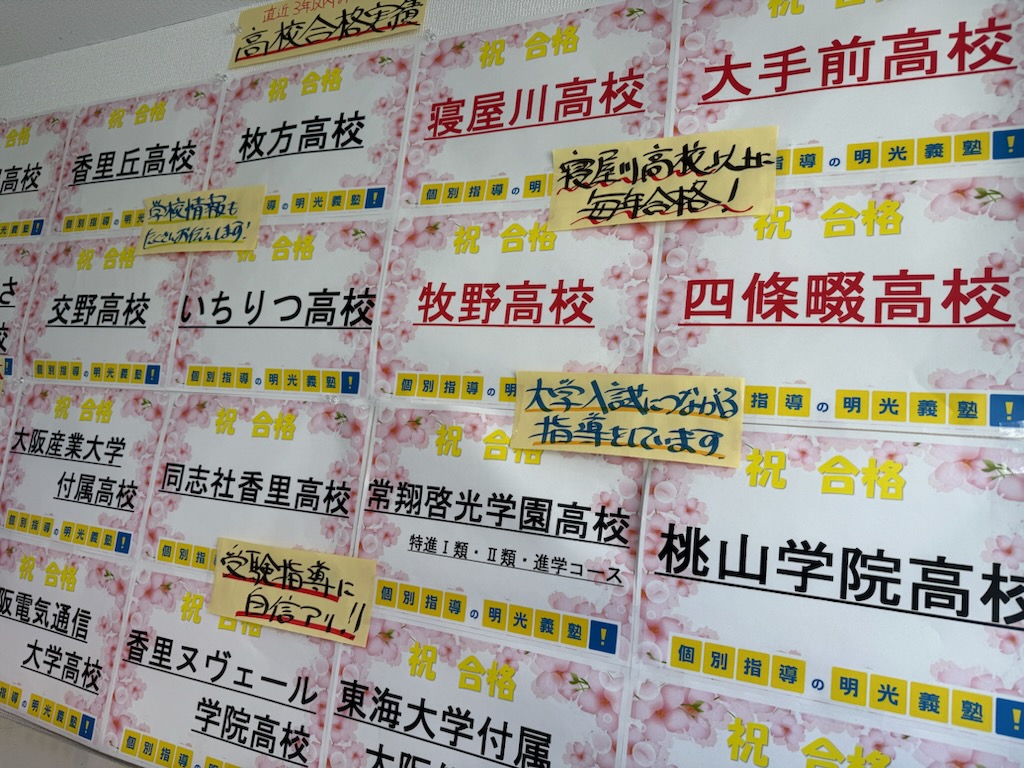 直近3年以内の
高校合格実績
祝 合格
高校
個別指導の明光義塾!
祝 合格
香里丘高校
個別指導の明
祝 合格
枚方高校
の明光義塾!
祝 合格
寝屋川高校
個別指導の明
祝 合格
大手前高校
指導の明光義塾!
学校情報も
たくさんお伝えします!
寝屋川高校以上に
毎年合格!
さ
校
祝 合格
交野高校
個別指導の明光義塾!
祝 合格
いちりつ高校
個別指導の明光義塾!
祝 合格
牧野高校
個別指導の明
祝 合格
四條畷高校
指導の明光義塾!
大学入試につながる
指導をしています
祝 合格
大阪産業大学
付属高校
個別指導の明光義塾!
祝 合格
同志社香里高校
個別
祝 合格
常翔啓光学園高校
特進Ⅰ類・Ⅱ類・進学コース
個別指導の明光義塾!
祝 合格
桃山学院高校
個別指導の明光義塾!
受験指導に
自信アリ!!
祝 合格
阪電気通信
大学高校
指導の明光義塾!
祝 合格
香里ヌヴェール
学院高校
個別指導の明光義塾!
祝 合格
東海大学付属
祝 合格